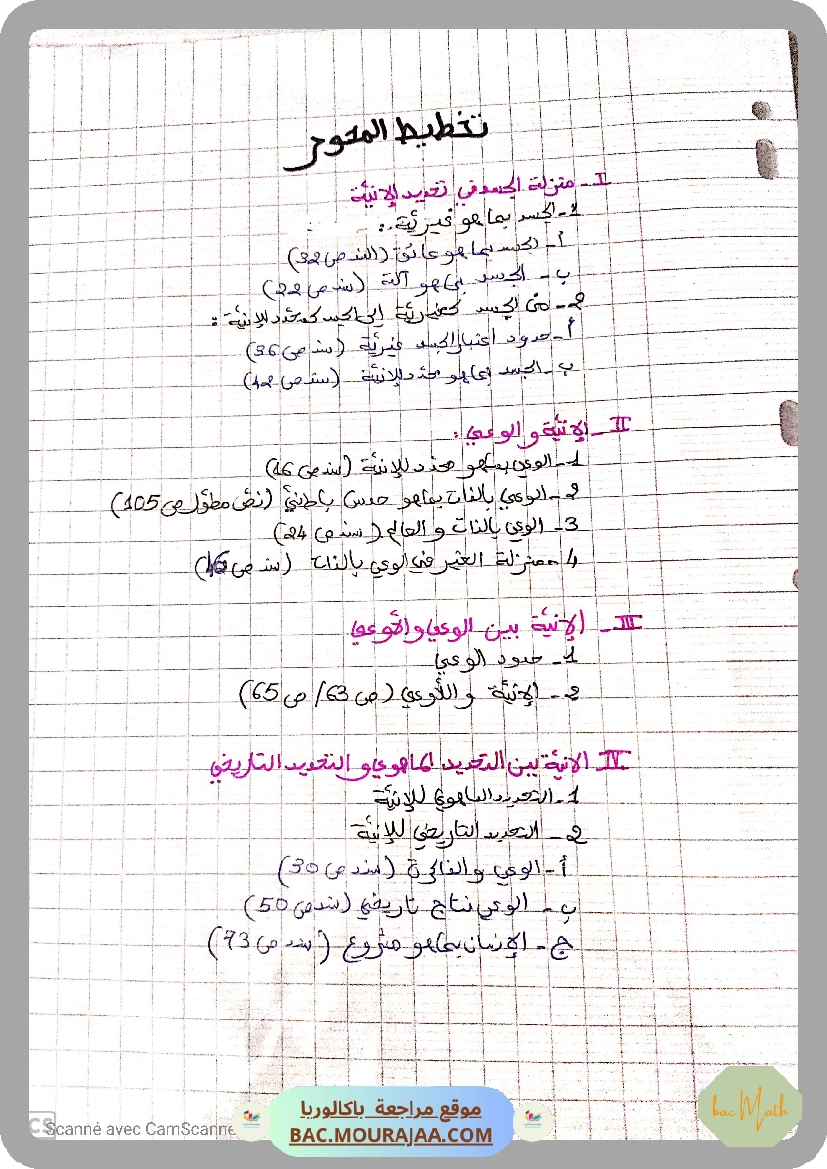 تخطيط المحور
I- منزلة الجسد في تحديد الإنيّة
1- الجسد بما هو غيريّة :
أ- الجسد بما هو عائق (السند ص 32)
ب- الجسد بما هو آلة (سند ص 22)
2- من الجسد كغيريّة إلى الجسد كمحدّد للإنيّة :
أ- حدود اعتبار الجسد غيريّة (سند ص 36)
ب- الجسد بما هو محدّد للإنيّة (سند ص 42)
II- الإنيّة و الوعي :
1- الوعي بما هو محدّد للإنيّة (سند ص 16)
2- الوعي بالذات بما هو حدس باطنيّ (نصّ مطوّل ص 105)
3- الوعي بالذات و العالم (سند ص 24)
4- منزلة الغير في الوعي بالذات (سند ص)
III- الإنيّة بين الوعي واللّاوعي
1- حدود الوعي
2- الإنيّة و اللّاوعي (ص 63/ ص 65)
IV- الانيّة بين التحديد الماهوي و التحديد التاريخي
1- التحديد الماهوي للإنيّة
2- التحديد التاريخي للإنيّة
أ- الوعي و الذاكرة (سند ص 30)
ب- الوعي نتاج تاريخي (سند ص 50)
ج- الإنسان بما هو مشروع (سند ص 73)
bac Math
موقع مراجعة باكالوريا
BAC.MOURAJAA.COM
CS Scanné avec CamScanne